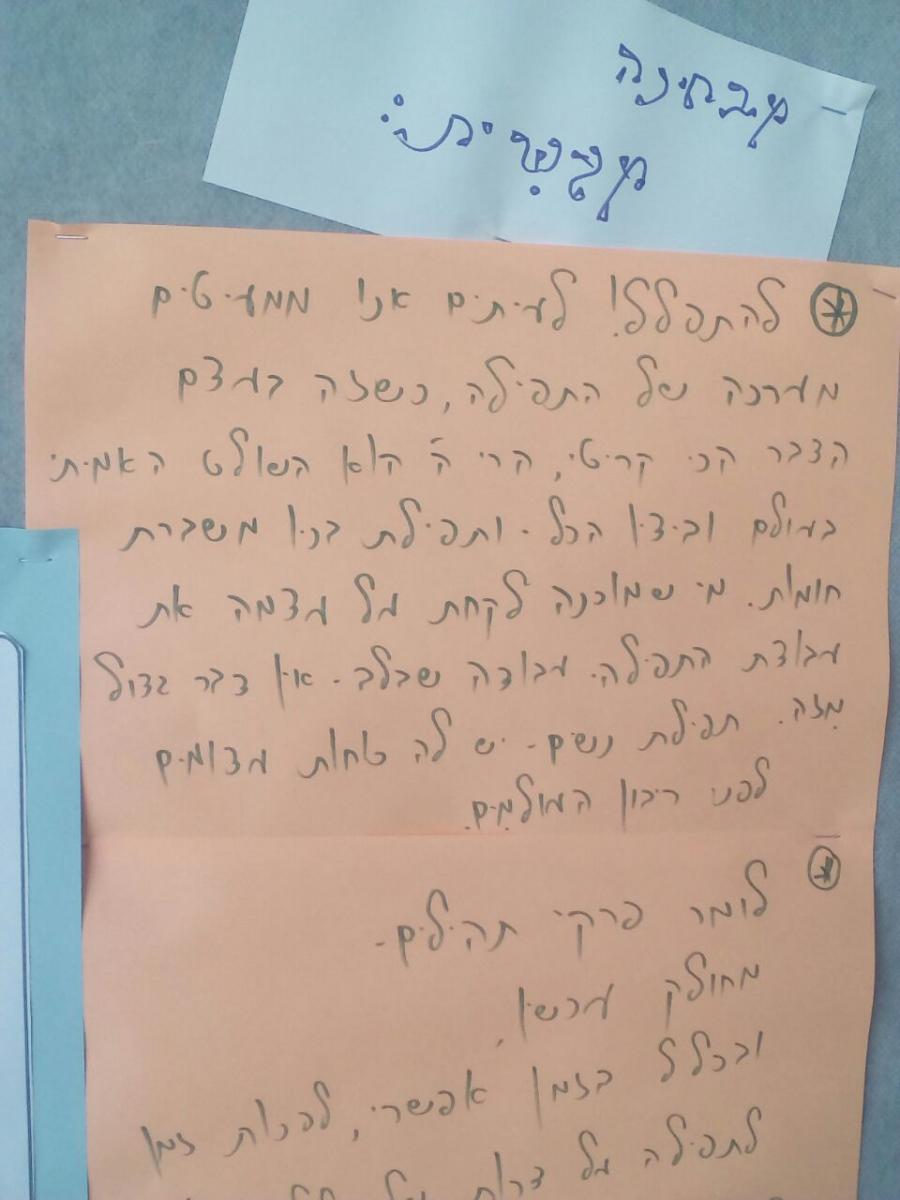 מבחינה
מעשית:
להתפלל! לעיתים אנו ממעיטים
מערכה של התפילה, כשזה בעצם
הדבר הכי קריטי, הרי ה' הוא השולט האמיתי
בעולם ובידיו הכל. ותפילת בניו משברת
חומות. מי שמוכנה לקחת על עצמה את
עבודת התפילה. עבודה שבלב. אין דבר גדול
מזה. תפילת נשים - יש לה כוחות עצומים
לפני ריבון העולמים.
לומר פרקי תהילים -
מחולק עכשיו,
ובכלל בזמן אפשרי, לפנות זמן
לתפילה על צרות של